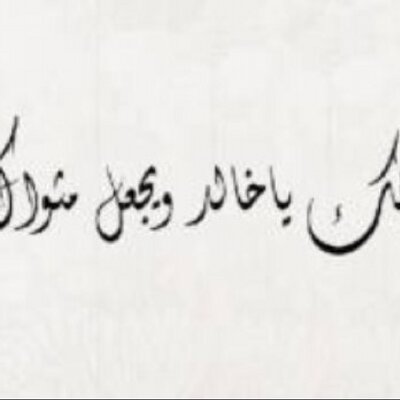 يا خالد ويجعل مثواك